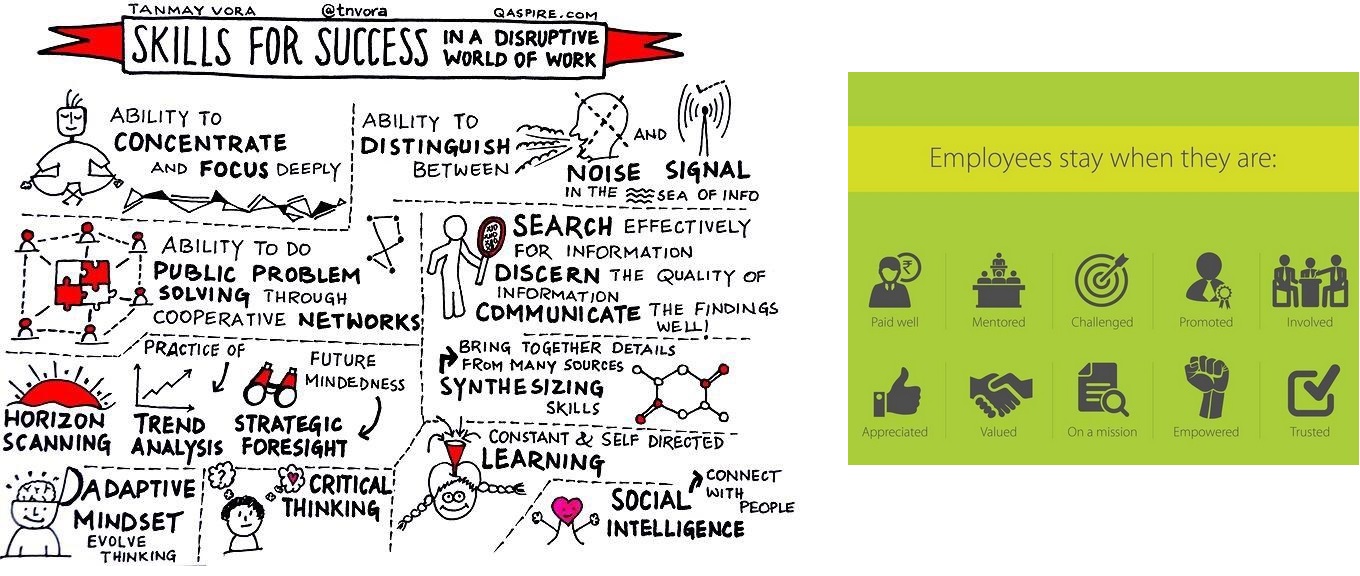 TANMAY VORA @tnvora QASPIRE.COM
SKILLS FOR SUCCESS IN A DISRUPTIVE
WORLD OF WORK
ABILITY TO
CONCENTRATE
AND FOCUS DEEPLY
ABILITY TO
DISTINGUISH
BETWEEN
AND
NOISE SIGNAL
IN THE SEA OF INFO
ABILITY TO DO
PUBLIC PROBLEM
SOLVING THROUGH
COOPERATIVE NETWORKS
SEARCH EFFECTIVELY
FOR INFORMATION
DISCERN THE QUALITY OF
INFORMATION
COMMUNICATE THE FINDINGS
WELL!
PRACTICE OF
FUTURE
MINDEDNESS
HORIZON
SCANNING
TREND
ANALYSIS
STRATEGIC
FORESIGHT
BRING TOGETHER DETAILS
FROM MANY SOURCES
SYNTHESIZING
SKILLS
CONSTANT & SELF DIRECTED
LEARNING
ADAPTIVE
MINDSET
EVOLVE
THINKING
?
CRITICAL
THINKING
SOCIAL
INTELLIGENCE
CONNECT
WITH
PEOPLE
Employees stay when they are:
₹
Paid well
Mentored
Challenged
Promoted
Involved
Appreciated
Valued
On a mission
Empowered
Trusted